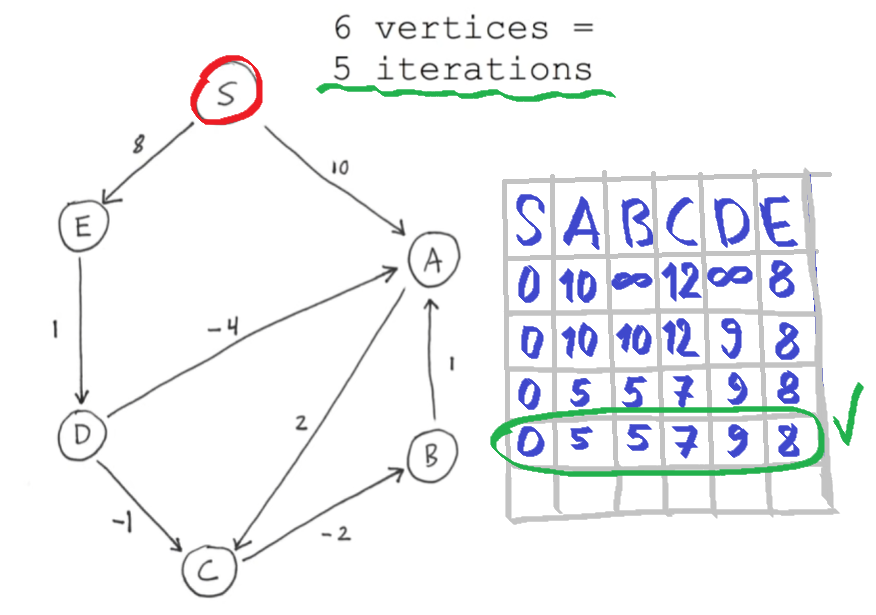 6 vertices =
5 iterations
S
8
10
E
A
1
-4
2
1
D
B
-1
-2
C
S A B C D E
0 10 ∞ 12 ∞ 8
0 10 10 12 9 8
0 5 5 7 9 8
0 5 5 7 9 8